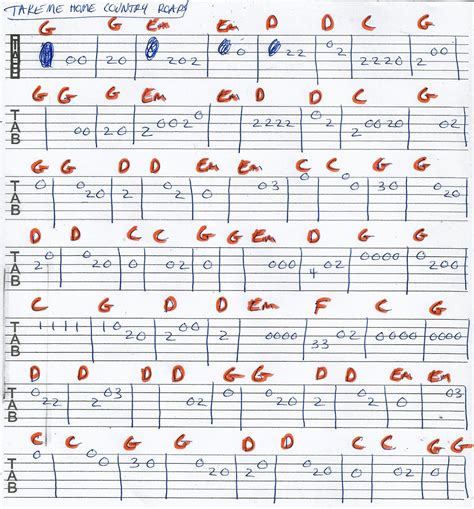 TAKE ME HOME COUNTRY ROADS
G G Em Em D D C G
TAB 00 20 202 0 22 02 2220 200
G G G Em Em D D C G
TAB 00 20 20020 2222 02 20020 02
G G D D Em Em C C G G
TAB 0 020 2 02 0 03 0 0 30 020
D D C C G G Em D G G
TAB 20 020 0 02 0 000 402 0000 0200
C G D D Em F C C
TAB 1111 1020 200 2 0000 3302 0000 0000
D D D D G G D D Em Em
TAB 022 203 02 020 2 02 0 03
C C G G D D C C G G
TAB 0 00 30 020 2 020 0 02 0